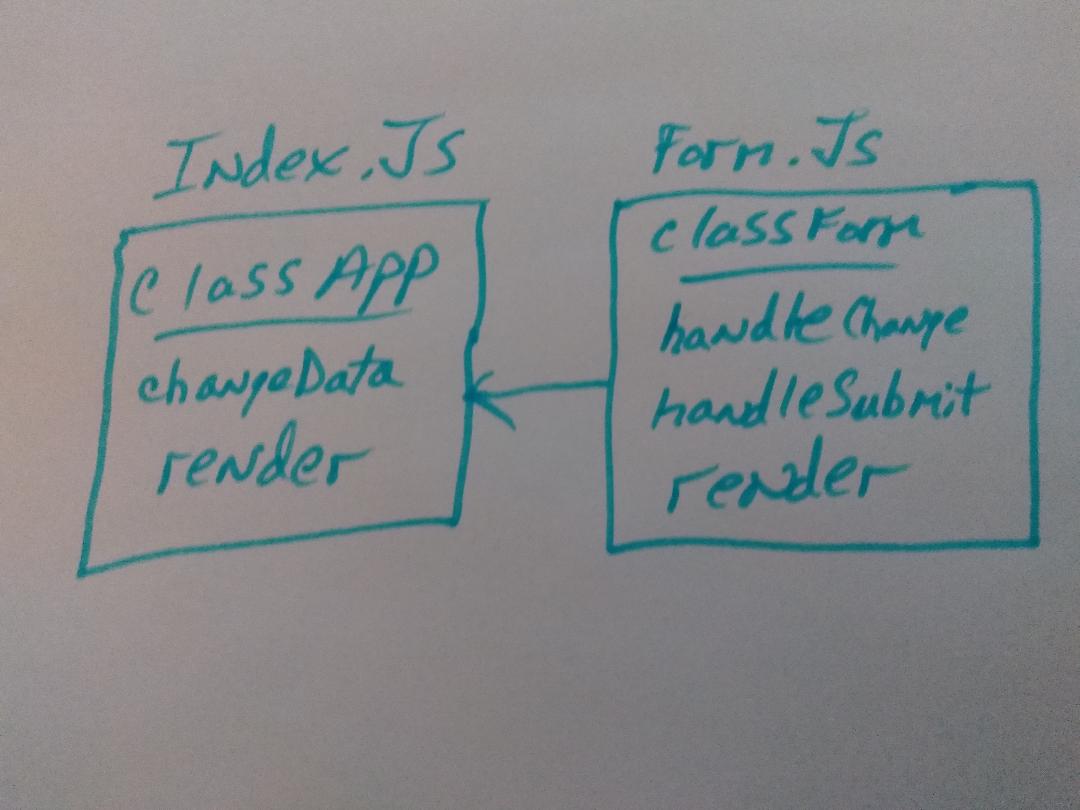 Index.Js
class App
changeData
render
Form.Js
class Form
handleChange
handleSubmit
render